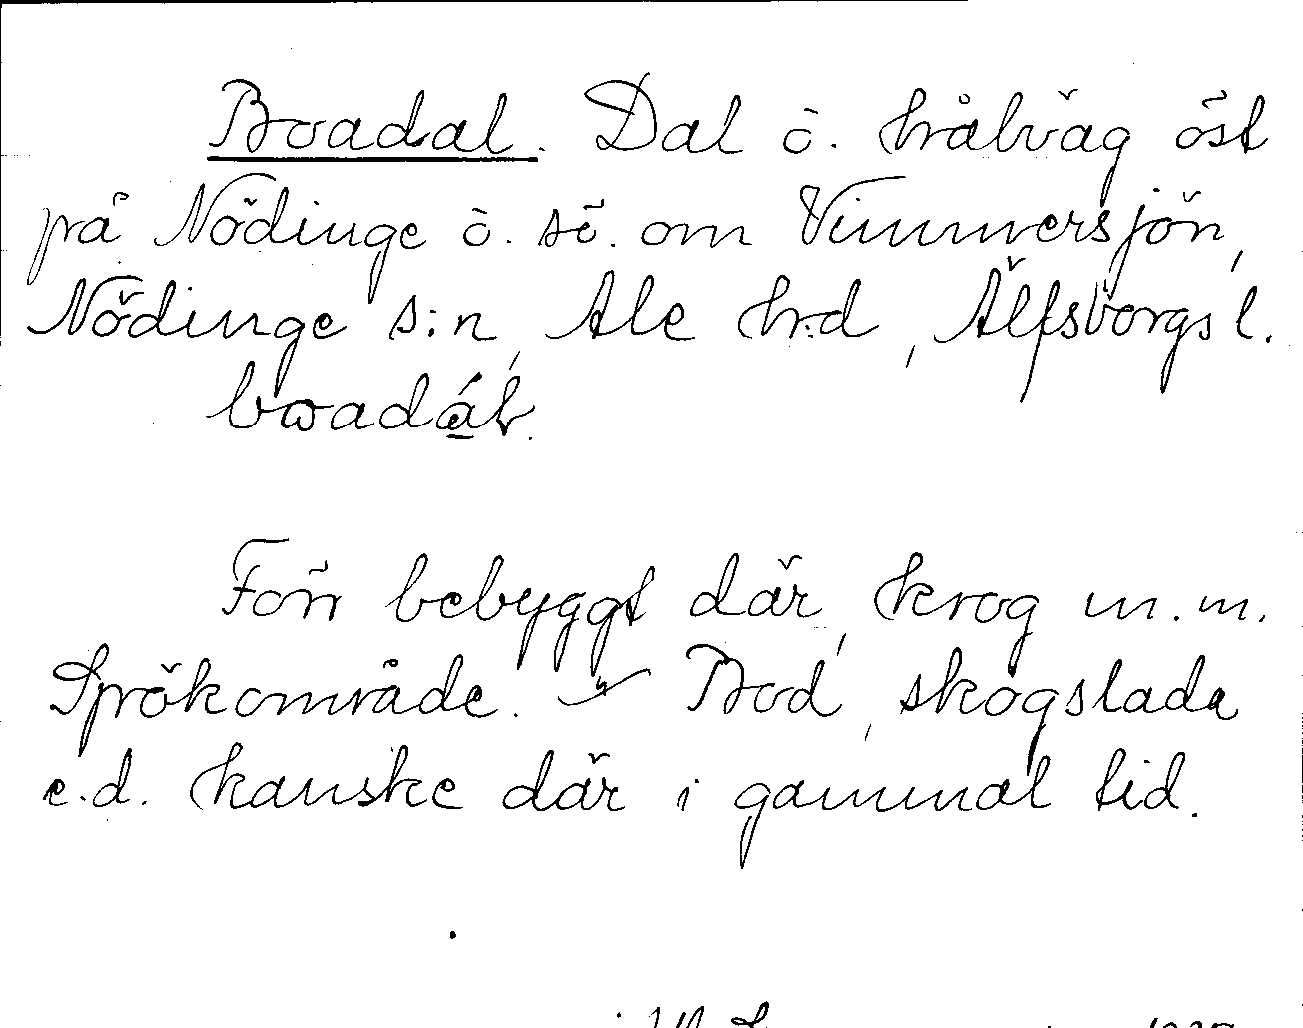 Boadal. Dal ö. hålväg öst
på Nödinge ö. sö. om Vimmersjön,
Nödinge s:n, Ale h:d, Älfsborgs l.
boadál.
Förr bebyggt där, krog m.m.
Spökområde. Bod, skogslada
e.d. kanske där i gammal tid.